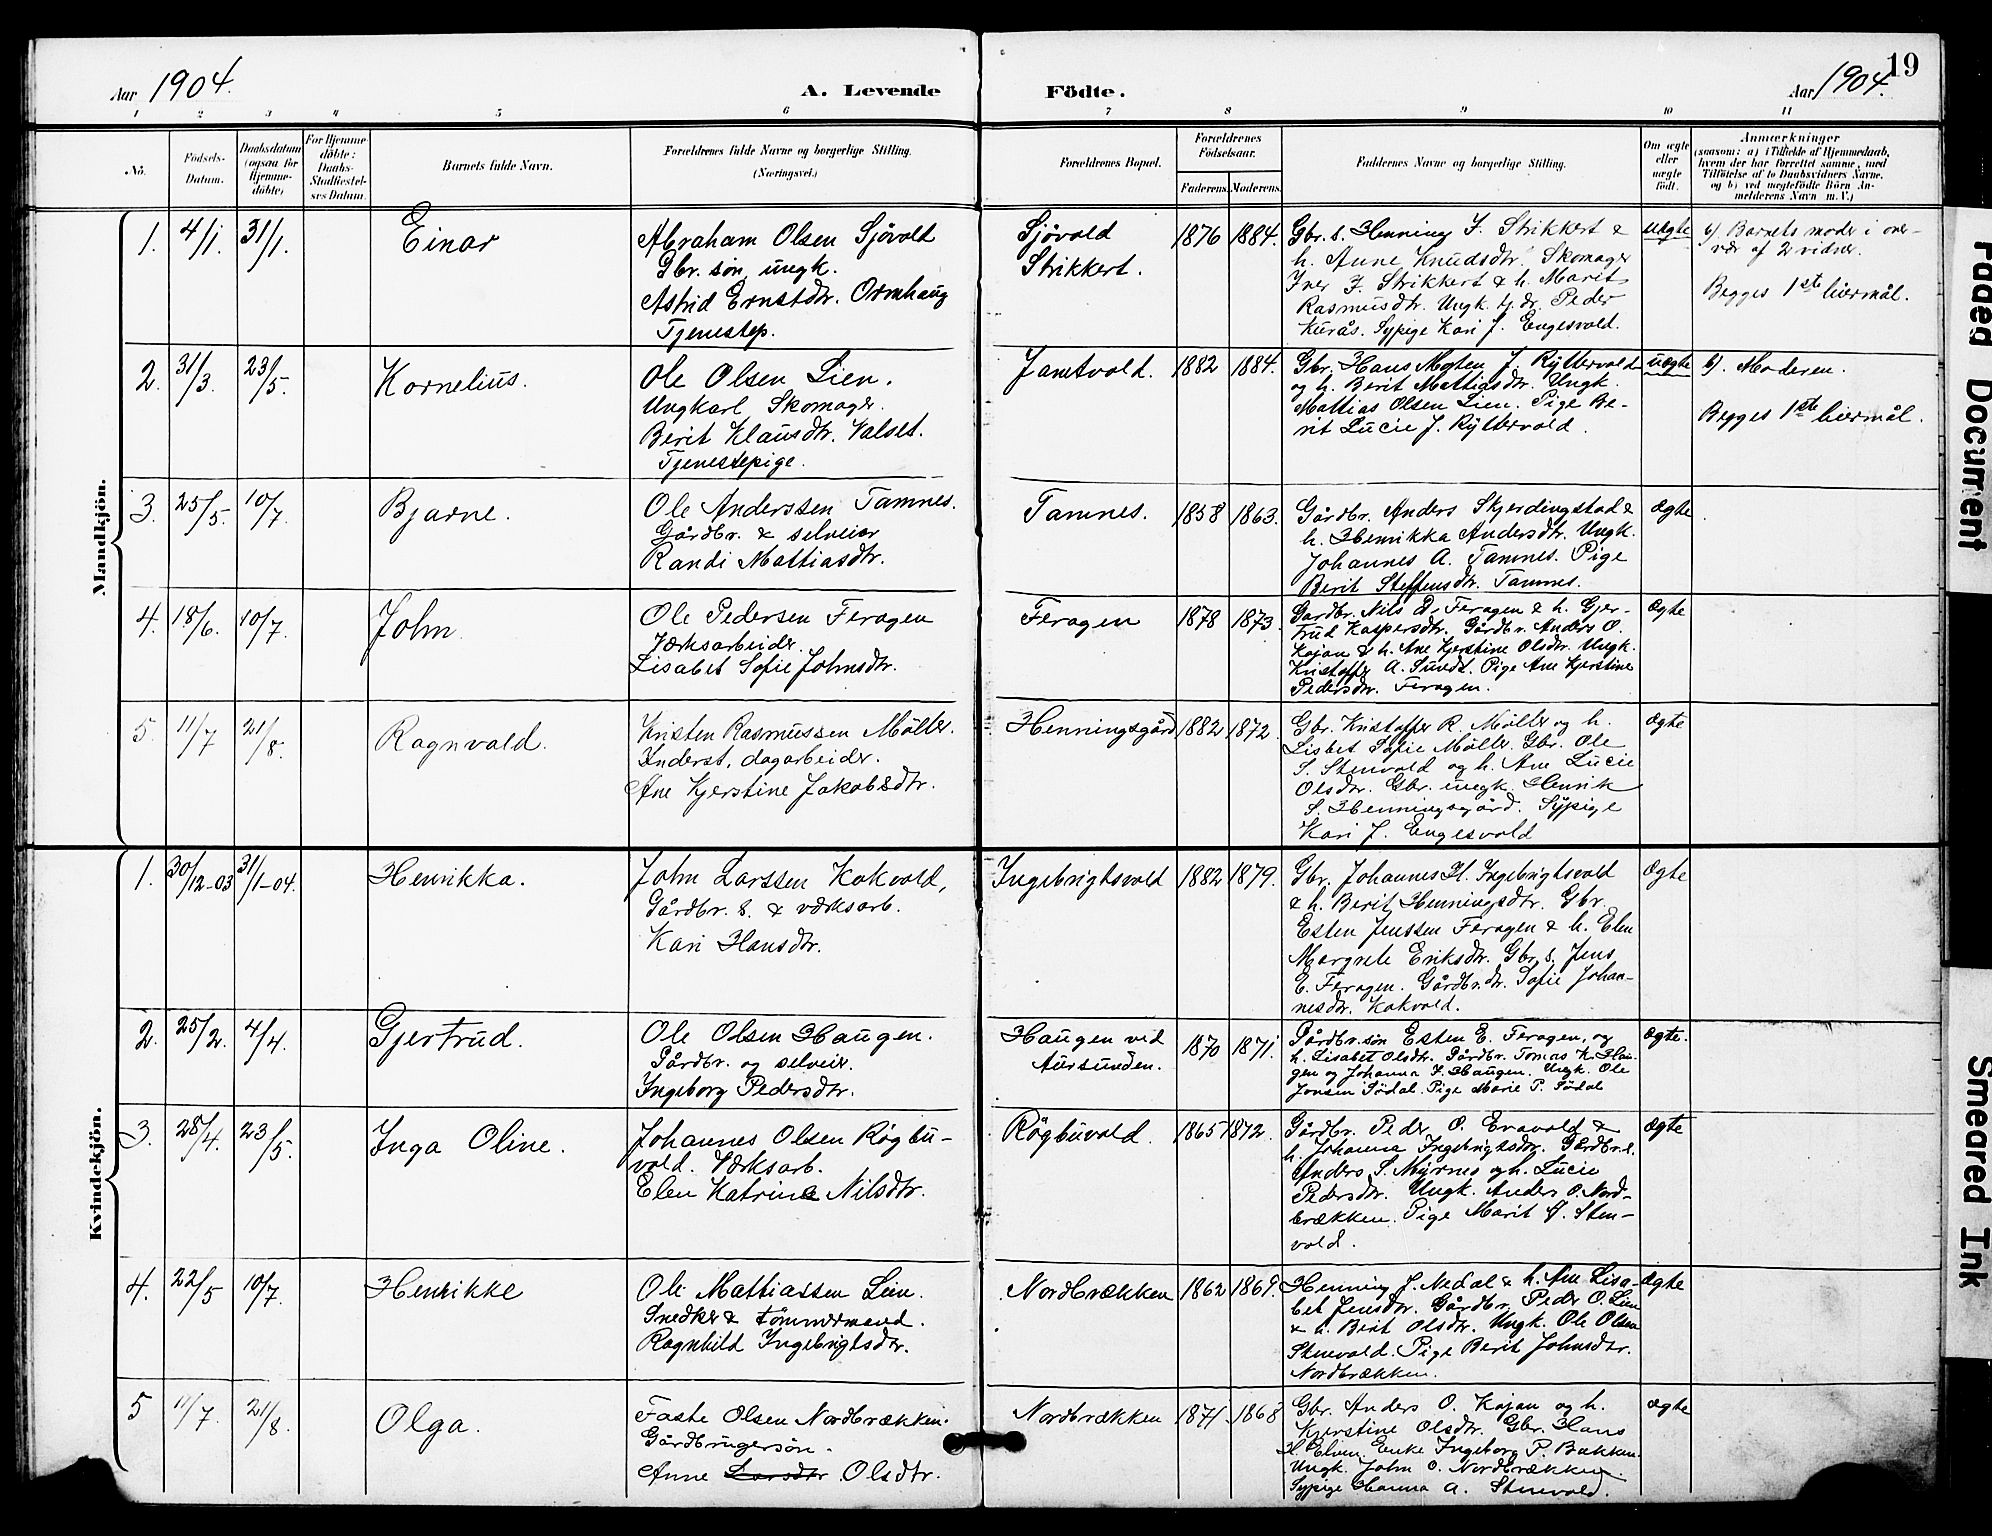 19
Aar 1904.
A. Levende
Födte.
Aar 1904.
1 2 3 4 5 6 7 8 9 10 11
No.
Födsels-
Datum.
Daabsdatum
(ogsaa for
Hjemme-
döbte)
For Hjemme-
döbte:
Daabs-
Stadfæstel-
ses Datum.
Barnets fulde Navn.
Forældrenes fulde Navne og borgerlige Stilling.
(Næringsvei.)
Forældrenes Bopæl.
Forældrenes
Födselsaar.
Faderens.
Moderens.
Faddernes Navne og borgerlige Stilling.
Om ægte
eller
uægte
födt.
Anmærkninger
(saasom: a) i Tilfælde af Hjemmedaab,
hvem der har forrettet samme, med
Tilföielse af to Daabsvidners Navne,
og b) ved uægtefödte Börn An-
melderens Navn m. V.)
Mandkjön.
1.
4/1.
31/1.
Einar
Abraham Olsen Sjövold
Gbr. søn, ungk.
Astrid Ernstdtr. Ormhaug
Tjenestep.
Sjövold
Strikkert.
1876
1884.
Gbr. s. Henning J. Strikkert &
h. Anne Knudsdtr. Skomager
Iver J. Strikkert & h. Marit
Rasmusdtr. Ungk. Peder
Kurås. Sypige Kari J. Engesvold.
uægte
b) Barnets moder i over-
vær af 2 vidner.
Begges 1ste leiermål.
2.
31/3.
23/5.
Kornelius.
Ole Olsen Lien.
Ungkarl Skomager.
Berit Klausdtr. Valset.
Tjenestepige.
Jamtvold.
1882
1884.
Gbr. Hans Morten J. Ryttervold
og h. Berit Mattiasdtr. Ungk.
Mattias Olsen Lien. Pige Be-
rit Lucie J. Ryttervold.
uægte
b) Moderen.
Begges 1ste leiermål.
3.
25/5.
10/7.
Bjarne.
Ole Anderssen Tamnes.
Gårdbr. & selveier
Randi Mattiasdtr.
Tamnes.
1858
1863.
Gårdbr. Anders Skjerdingstad &
h. Henrikka Andersdtr. Ungk.
Johannes A. Tamnes. Pige
Berit Steffensdtr. Tamnes.
Ægte
4.
18/6.
10/7.
John
Ole Pedersen Feragen
Værksarbeider.
Lisabet Sofie Johnsdtr.
Feragen
1878
1873.
Gårdbr. Nils P. Feragen & h. Gjer-
trud Kaspersdtr. Gårdbr. Anders O.
Kojan & h. Ane Kjerstine Olsdtr. Ungk.
Kristoffer A. Sundt. Pige Ane Kjerstine
Pedersdtr. Feragen.
Ægte
5.
11/7
21/8.
Ragnvald.
Kristen Rasmussen Möller.
Inderst, dagarbeider.
Ane Kjerstine Jakobsdtr.
Henningsgård
1882
1872.
Gbr. Kristoffer R. Möller og h.
Lisbet Sofie Möller. Gbr. Ole
S. Stenvold og h. Ane Lucie
Olsdtr. Gbr. ungk. Henrik
S. Henningsgård. Sypige
Kari J. Engesvold
Ægte
Kvindekjön.
1.
30/12-03
31/1-04.
Henrikka.
John Larssen Kokvold,
Gårdbr. s. & værksarb.
Kari Hansdtr.
Ingebrigtsvold
1882
1879.
Gbr. Johannes H. Ingebrigtsvold
& h. Berit Henningsdtr. Gbr.
Esten Jenssen Feragen & h. Elen
Margrete Eriksdtr. Gbr. s. Jens
E. Feragen. Gårdbr. dtr. Sofie Johan-
nesdtr. Kokvold.
Ægte
2.
25/2.
4/4.
Gjertrud.
Ole Olsen Haugen.
Gårdbr. og selveier.
Ingeborg Pedersdtr.
Haugen ved
Aursunden.
1870
1871.
Gårdbr. søn Esten E. Feragen, og
h. Lisabet Olsdtr. Gårdbr. Tomas K. Hau-
gen og Johanna J. Haugen. Ungk. Ole
Jonsen Södal. Pige Marie P. Södal
Ægte.
3.
28/4.
23/5.
Inga Oline.
Johannes Olsen Røgbu-
vold. Værksarb.
Elen Katrine Nilsdtr.
Røgbuvold.
1865
1872.
Gårdbr. Peder O. Evavold &
h. Johanna Ingebrigtsdtr. Gårdbr. s.
Anders S. Myrnes og h. Lucie
Pedersdtr. Ungk. Anders O. Nord-
brækken. Pige Marit J. Sten-
vold.
Ægte
4.
22/5
10/7.
Henrikke
Ole Mattiassen Lien.
Snedker & tömmermand.
Ragnhild Ingebrigtsdtr.
Nordbrækken
1862
1869.
Henning J. Nedal & h. Ane Lisa-
bet Jensdtr. Gårdbr. Peder O. Lien
& h. Berit Olsdtr. Ungk. Ole Olsen
Stenvold. Pige Berit Johnsdtr.
Nordbrækken.
Ægte
5
11/7.
21/8.
Olga.
Faste Olsen Nordbrækken.
Gårdbrugersön.
Anne Larsdtr Olsdtr.
Nordbrækken
1871
1868
Gbr. Anders O. Kojan og h.
Kjerstine Olsdtr. Gbr. Hans
H. Elven. Enke Ingeborg P. Bakken.
Ungk. John O. Nordbrækken.
Sypige Hanna A. Stenvold.
Ægte
Faded Document
Smeared Ink